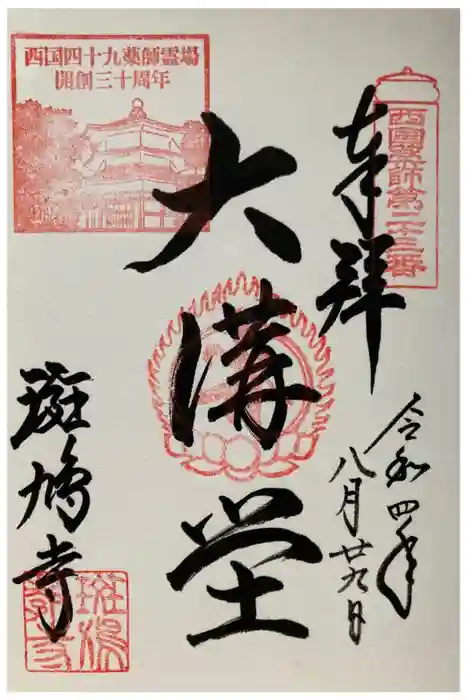 西國薬師第二十三番
奉拝
令和四年
八月廿九日
大講堂
西国四十九薬師霊場
開創三十周年
斑鳩寺